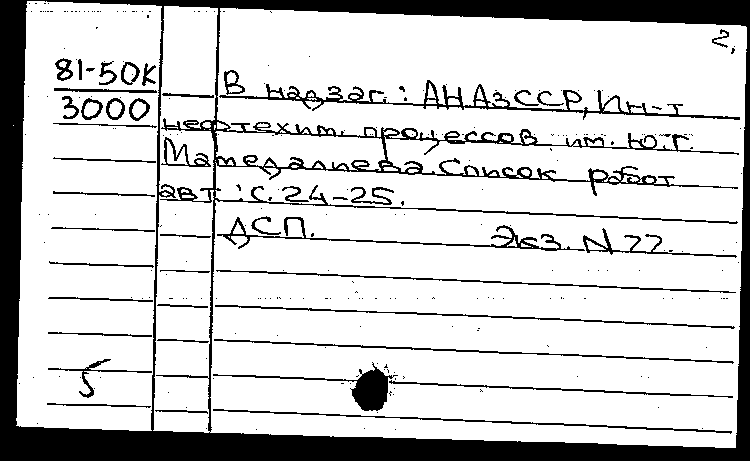 2.
81-50К
3000
В надзаг.: АН АзССР, Ин-т
нефтехим. процессов им. Ю.Г.
Мамедалиева. Список работ
авт.: с. 24-25.
ДСП. Экз. N 77.
5